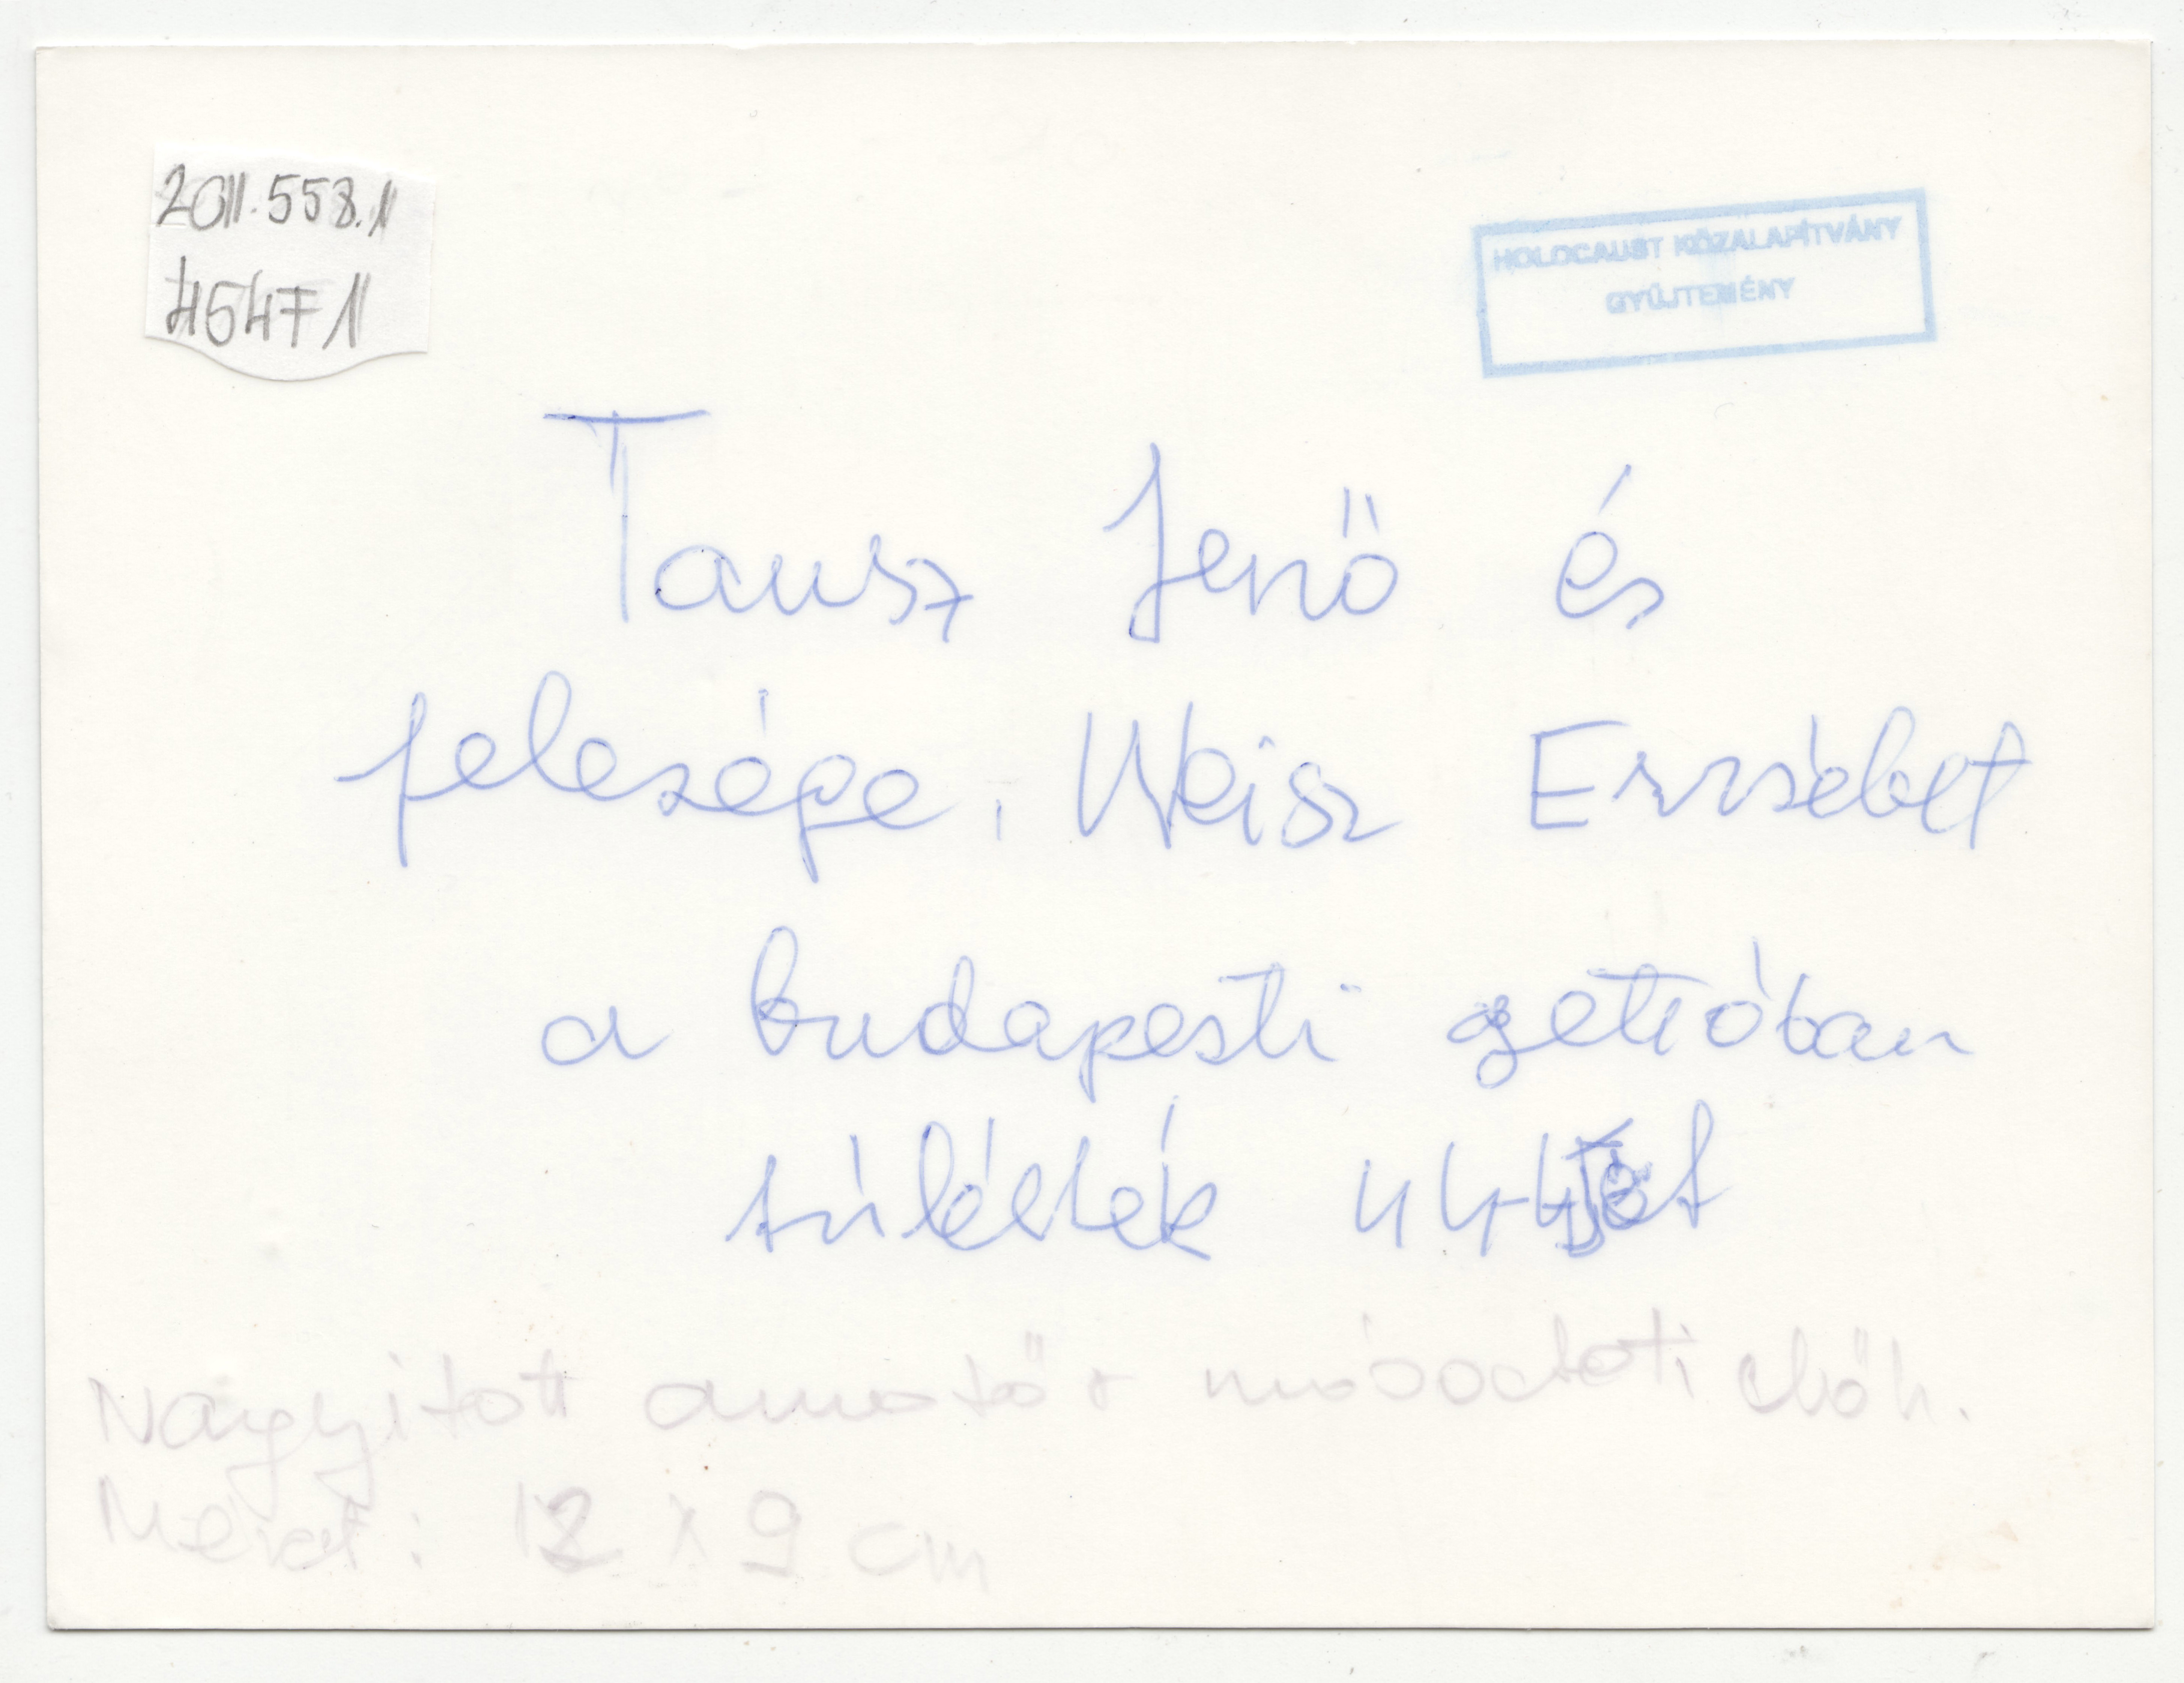 2011.558.1
45471
HOLOCAUST KÖZALAPÍTVÁNY
GYŰJTEMÉNY
Tausz Jenő és
felesége, Weisz Erzsébet
a budapesti gettóban
túlélték
Nagyított amatőr
Méret: 12 x 9 cm